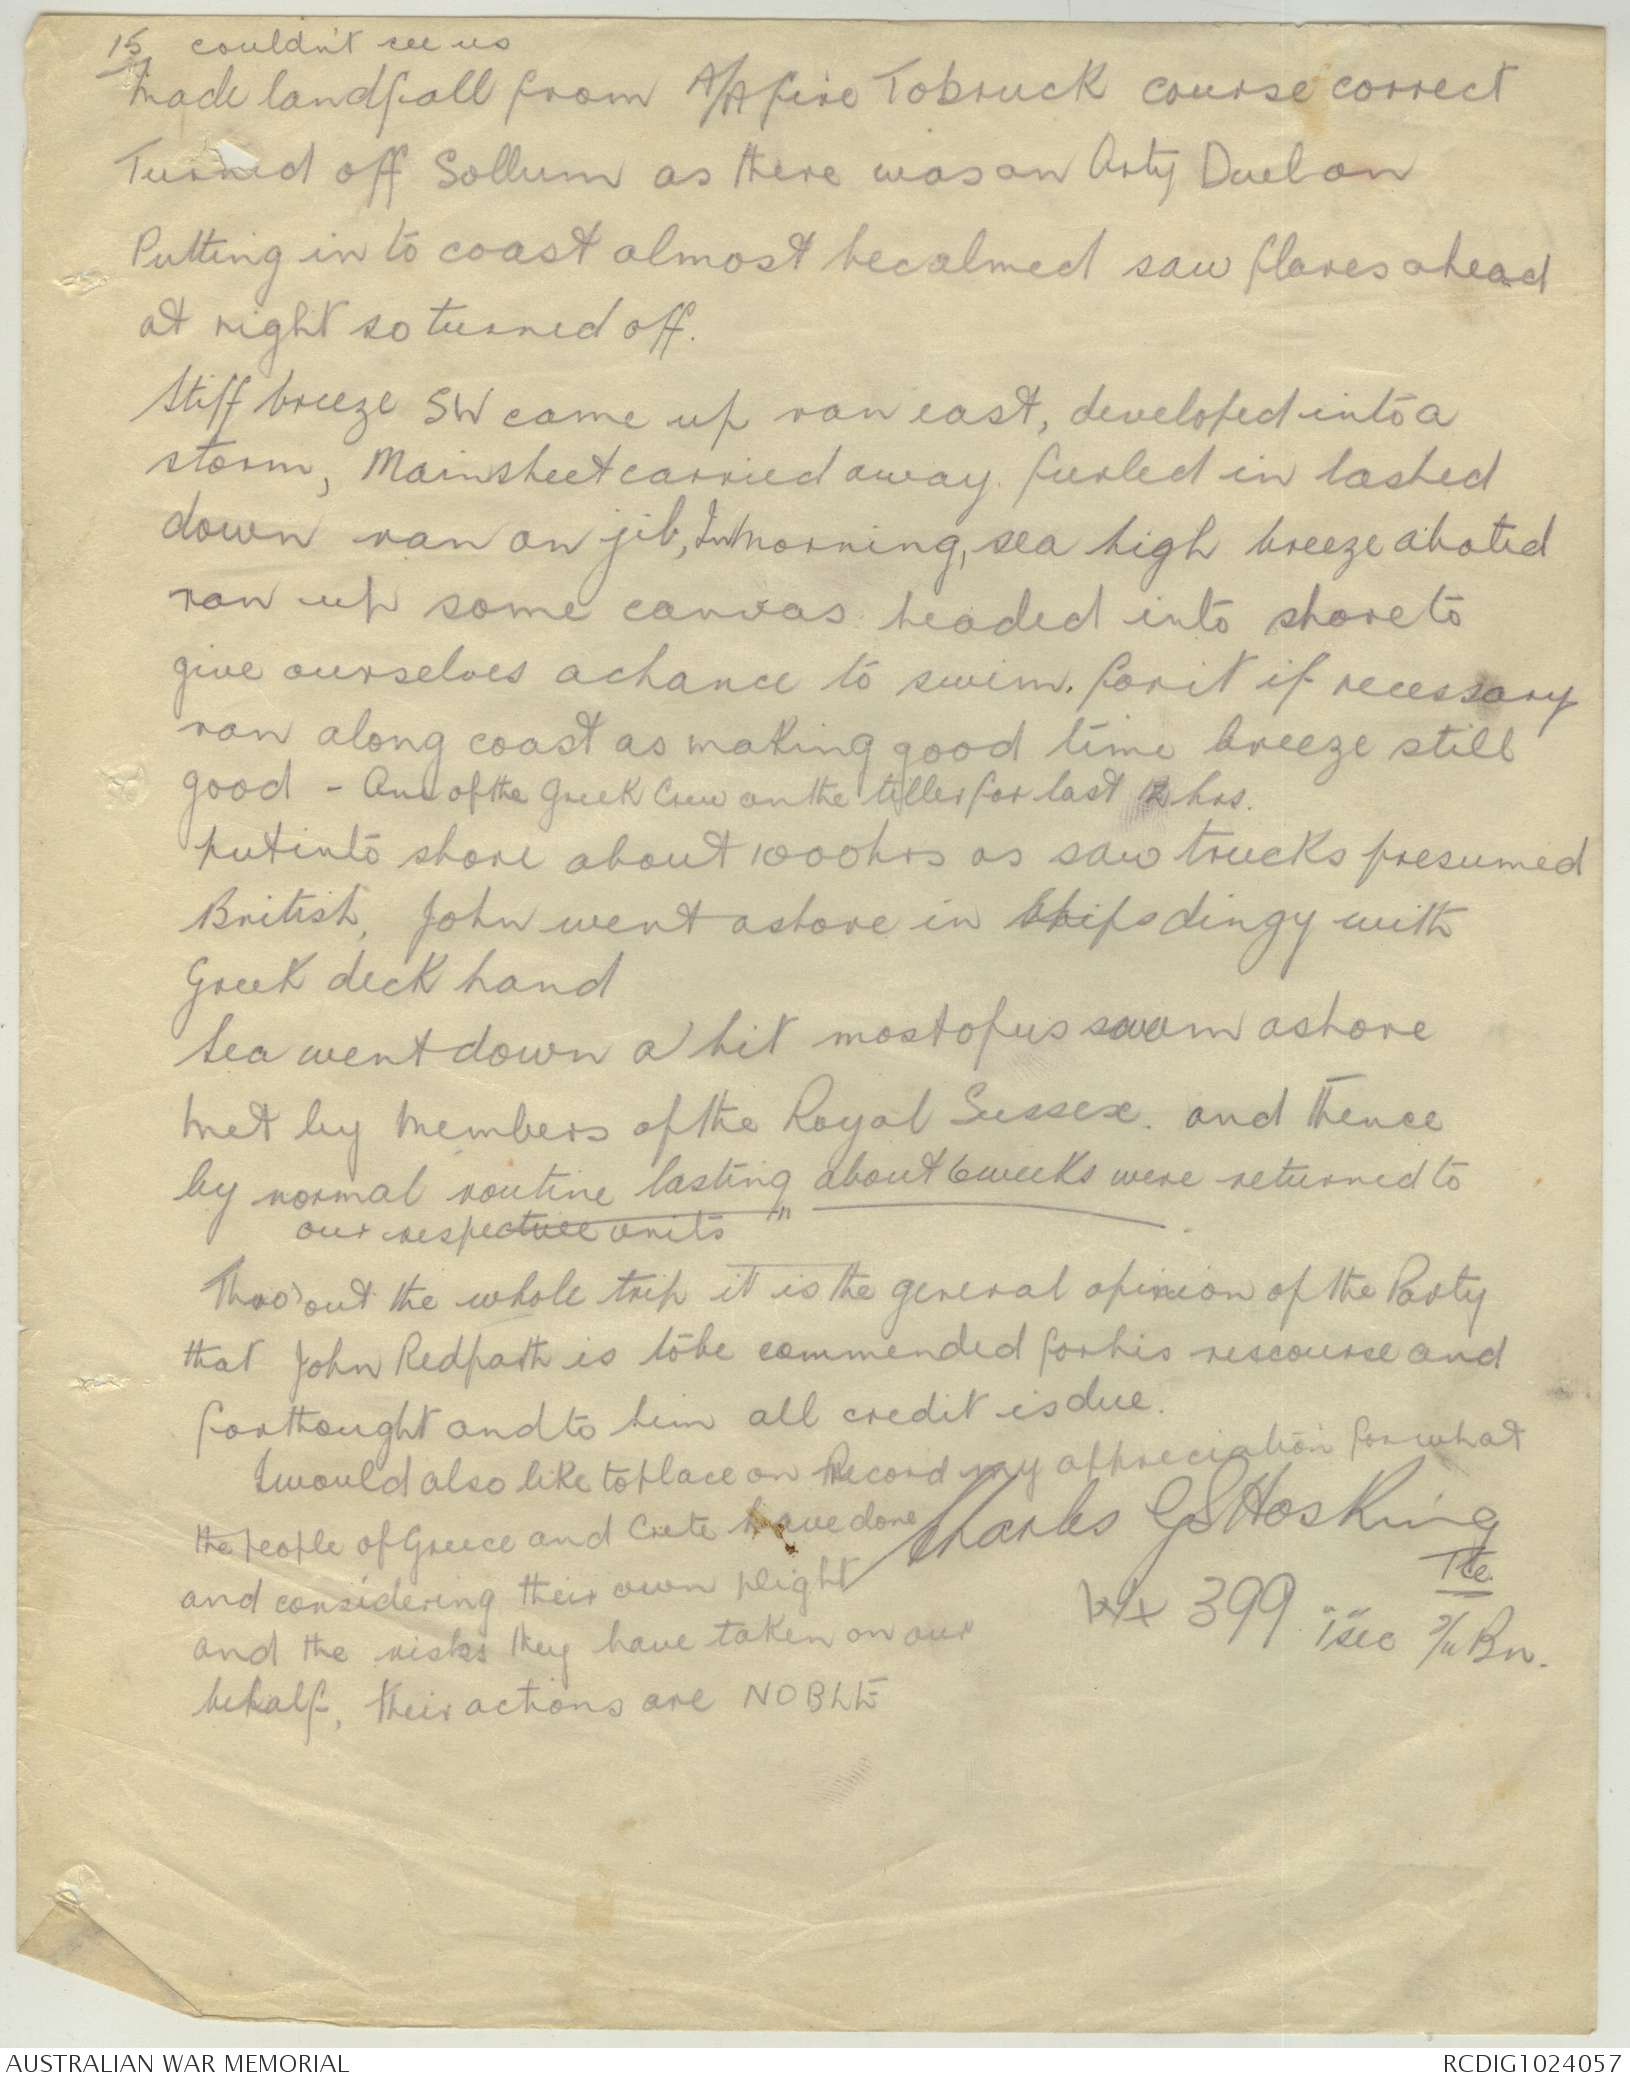 15/ couldn't see us
Made landfall from A/A fire Tobruck course correct
Turned off Sollum as there was an Arty Duel on
Putting in to coast almost becalmed saw flares ahead
at night so turned off.
Stiff breeze SW came up ran east, developed into a
storm, Mainsheet carried away. furled in lashed
down ran on jib, In Morning, sea high breeze abated
ran up some canvas headed into shore to
give ourselves a chance to swim. for it if necessary
ran along coast as making good time breeze still
good - One of the Greek Crew on the tiller for last 12 hrs.
put into shore about 1000hrs as saw trucks presumed
British, John went ashore in Ships dingy with
Greek deck hand
Sea went down a bit most of us swam ashore
Met by Members of the Royal Sussex. and thence
by normal routine lasting about 6 weeks were returned to
our respective units "
Thro'out the whole trip it is the general opinion of the Party
that John Redpath is to be commended for his rescourse and
forthought and to him all credit is due.
I would also like to place on Record my appreciation for what
the people of Greece and Crete have done
Charles G S Hosking
Pte.
and considering their own plight
WX 399 "I" sec 2/11 Bn.
and the risks they have taken on our
behalf, their actions are NOBLE
AUSTRALIAN WAR MEMORIAL
RCDIG1024057